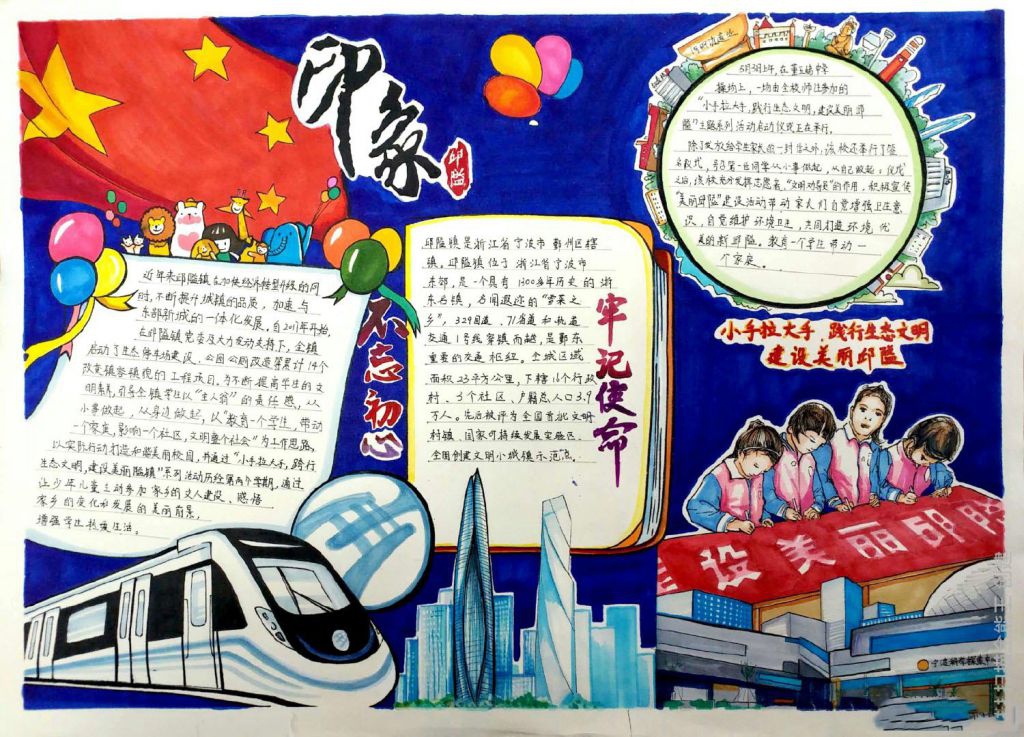 印象
邱隘
近年来邱隘镇在加快经济转型升级的同
时,不断提升城镇的品质,加速与
东部新城的一体化发展,自2017年开始,
在邱隘镇党委及大力支持下,全镇
启动了生态停车场建设、公园公厕改造等累计14个
改变镇容镇貌的工程项目,为不断提高学生的文
明素养,引导全镇学生以“主人翁”的责任感,从
小事做起,从身边做起,以“教育一个学生,带动
一个家庭,影响一个社区,文明整个社会”为工作思路,
以实际行动打造和谐美丽校园,并通过“小手拉大手,践行
生态文明,建设美丽邱隘镇”系列活动历经第两个学期,通过
让少年儿童主动参加家乡的文人建设、感悟
家乡的变化和发展的美丽前景,
增强学生热爱生活。
不忘初心
邱隘镇是浙江省宁波市鄞州区辖
镇。邱隘镇位于浙江省宁波市
东部,是一个具有1300多年历史的浙
东名镇,为闻遐迩的“雪菜之
乡”,329国道、71省道和轨道
交通1号线穿镇而越,是鄞东
重要的交通枢纽。全城区域
面积23平方公里,下辖16个行政
村、3个社区、户籍总人口3.9
万人。先后被评为全国首批文明
村镇、国家可持续发展实验区、
全国创建文明小城镇示范点。
牢记使命
3月3日上午,在董玉娣中学
操场上,一场由全校师生参加的
“小手拉大手,践行生态文明,建设美丽邱
隘”主题系列活动启动仪式正在举行。
除了发放给学生家长的一封信之外,该校还举行了签
名仪式,号召每一位同学从小事做起,从自己做起;仪式
之后,该校充分发挥志愿者、“文明劝导员”的作用,积极宣传
“美丽邱隘”建设活动带动家人们自觉增强卫生意
识,自觉维护环境卫生,共同打造环境优
美的新邱隘。教育一个学生带动一
个家庭。
小手拉大手,践行生态文明
建设美丽邱隘
建设美丽邱隘